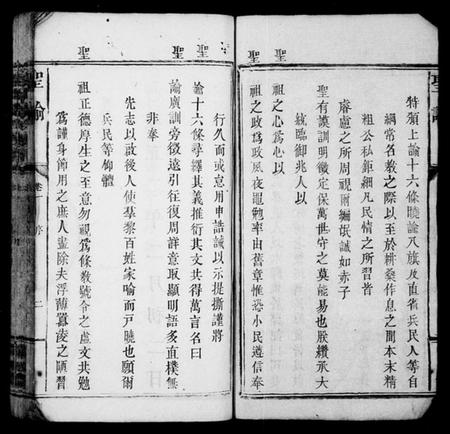 聖諭
特頒上諭十六條曉諭八旗及直省兵民人等自
綱常名教之際以至於耕桑作息之間本末精
粗公私鉅細凡民情之所習者皆
睿慮之所周視爾編氓誠如赤子
聖有謨訓明徵定保萬世守之莫能易也朕纘承大
統臨御兆人以
聖祖之心爲心以
聖祖之政爲政夙夜黽勉率由舊章惟恐小民遵信奉
行久而或怠用申誥誡以示提撕謹將
聖諭十六條尋繹其義推衍其文共得萬言名曰
聖諭廣訓旁徵遠引往復周詳意取顯明語多直樸無
非奉
先志以啟後人使羣黎百姓家喻而戶曉也願爾
兵民等仰體
聖祖正德厚生之至意勿視爲條教號令之虛文共勉
爲謹身節用之庶人盡除夫浮薄囂凌之陋習
聖諭 序 二